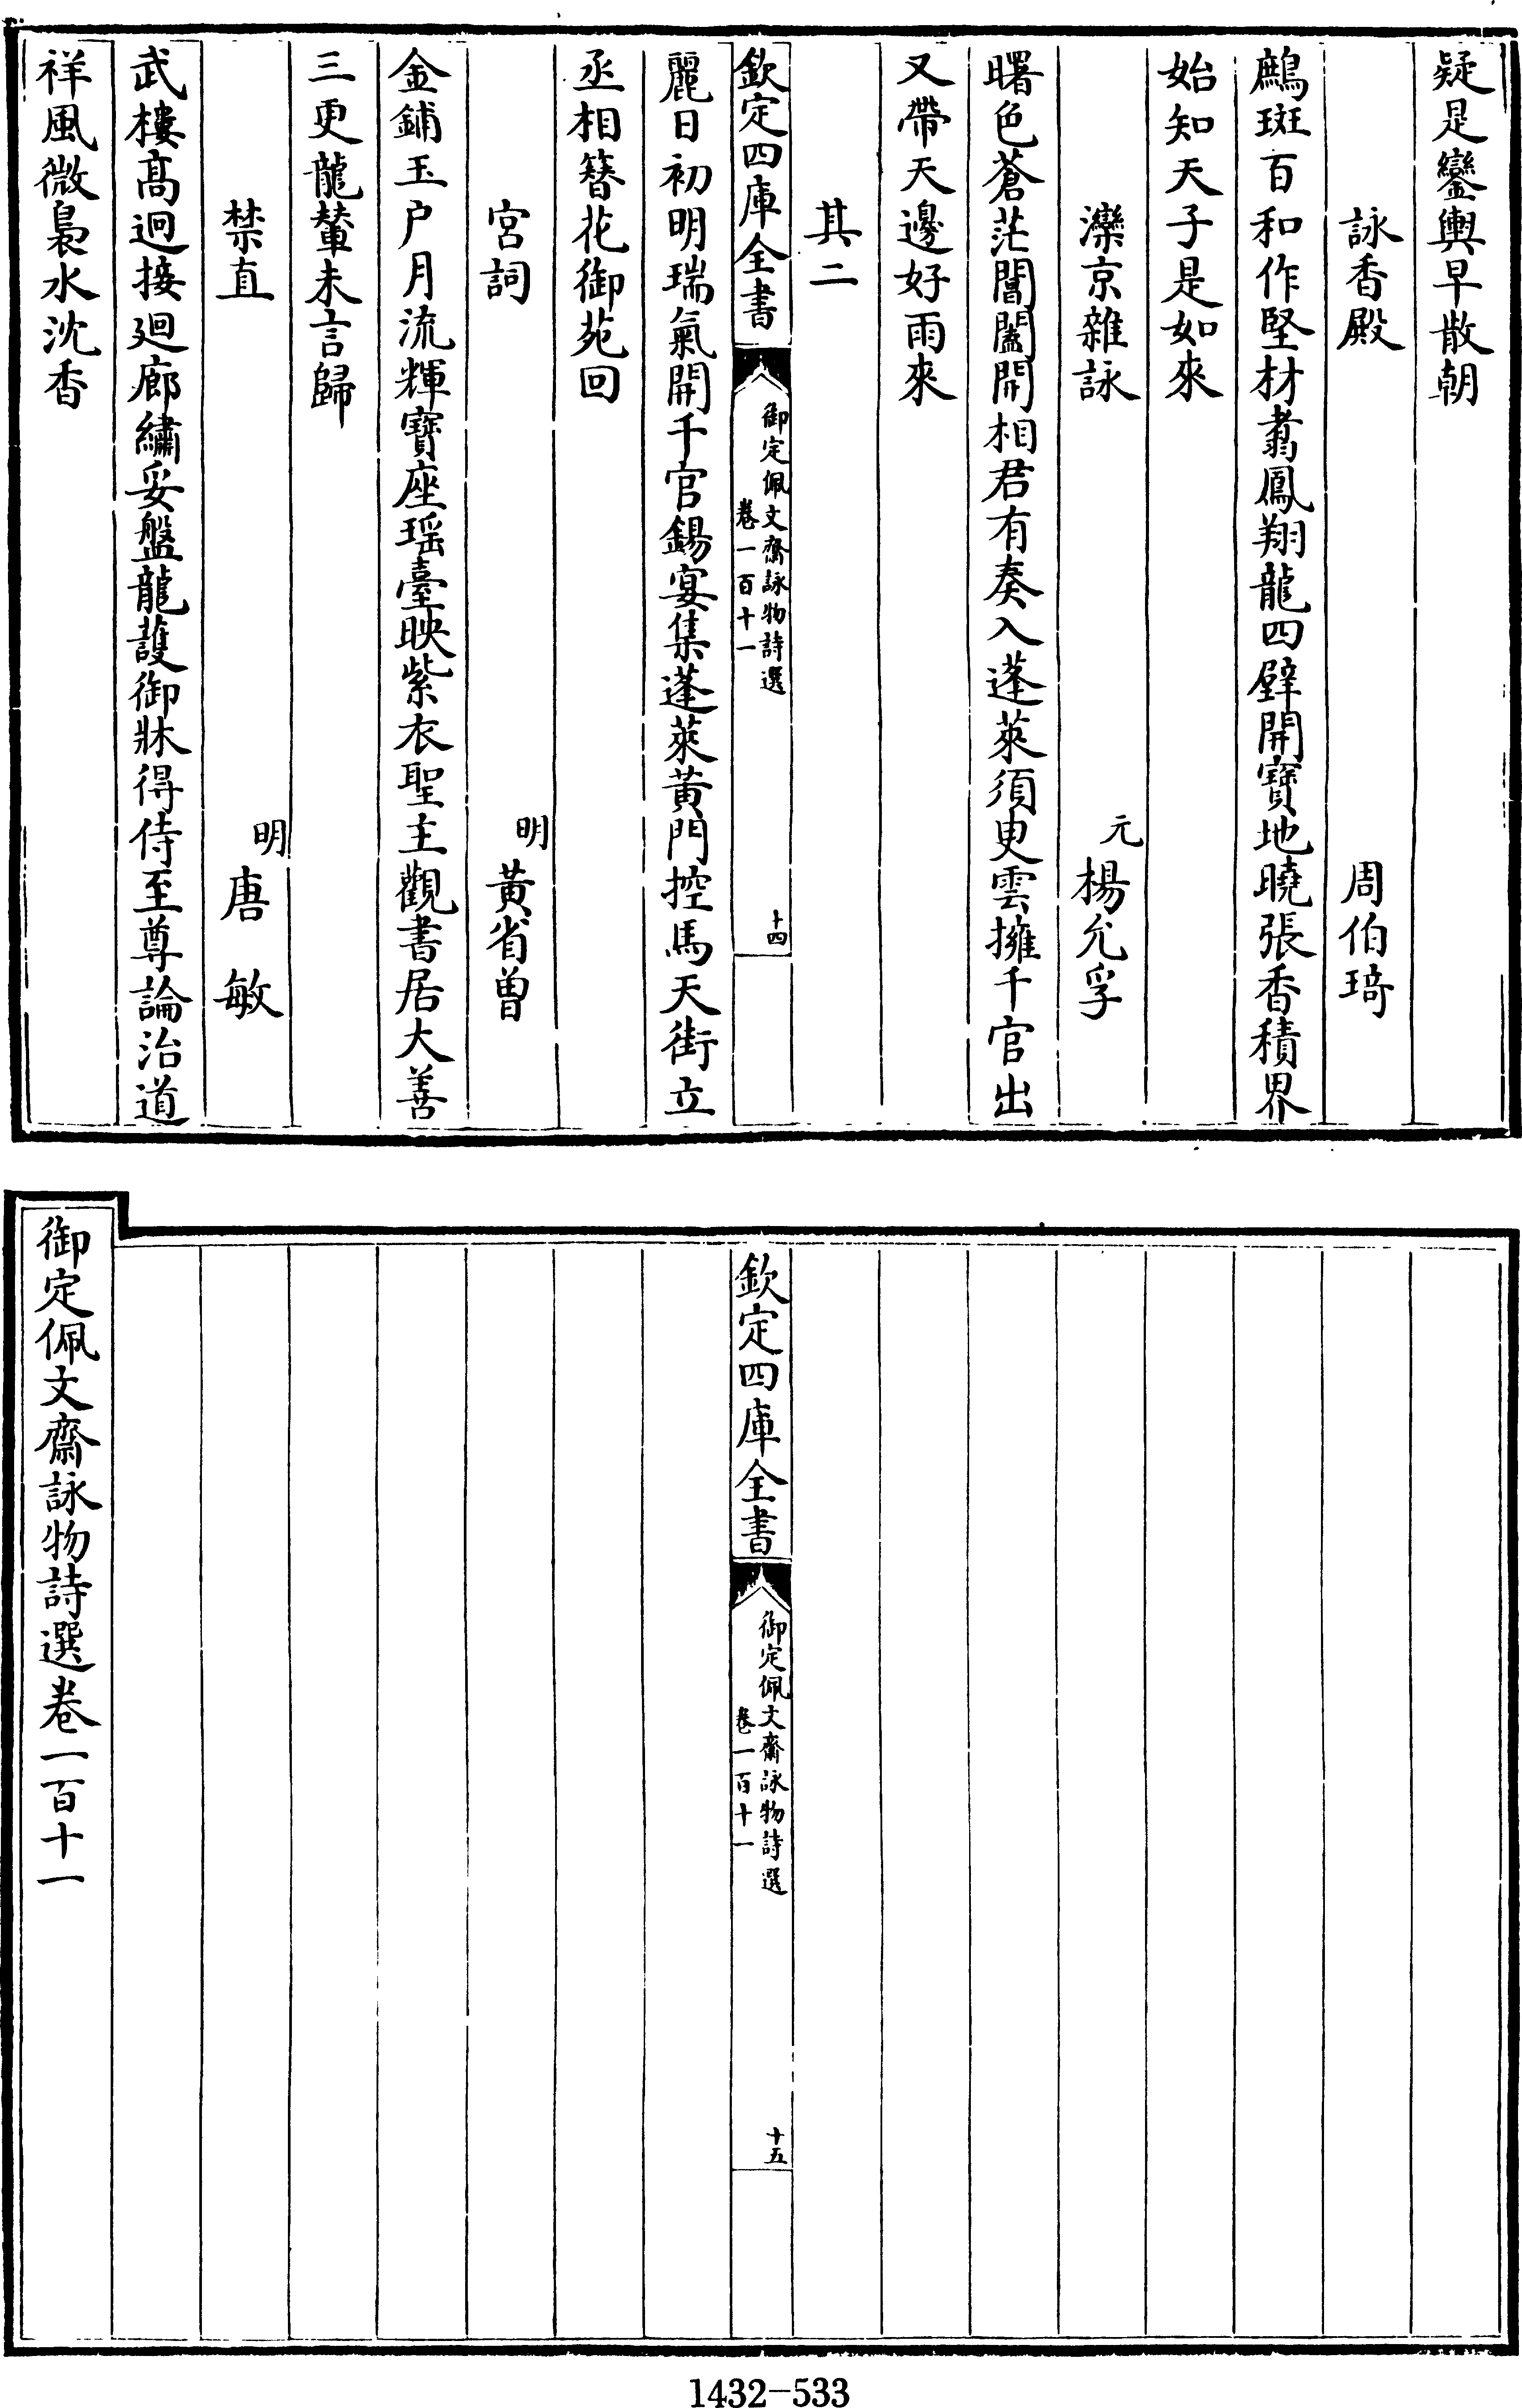 疑是鑾輿早散朝
詠香殿 周伯琦
鷓斑百和作堅材翥鳳翔龍四壁開寶地曉張香積界
始知天子是如來
灤京雜詠 元 楊允孚
曙色蒼茫閶闔開相君有奏入蓬萊須更雲擁千官出
又帶天邊好雨來
其二
欽定四庫全書
御定佩文齋詠物詩選
卷一百十一
十四
麗日初明瑞氣開千官錫宴集蓬萊黄門控馬天街立
丞相簪花御苑回
宮詞 明 黄省曾
金鋪玉户月流輝寶座瑶臺映紫衣聖主觀書居大善
三更龍輦未言歸
禁直 明 唐敏
武樓高迥接廻廊繡妥盤龍護御牀得侍至尊論治道
祥風微裊水沈香
欽定四庫全書
御定佩文齋詠物詩選
卷一百十一
十五
御定佩文齋詠物詩選卷一百十一
1432-533